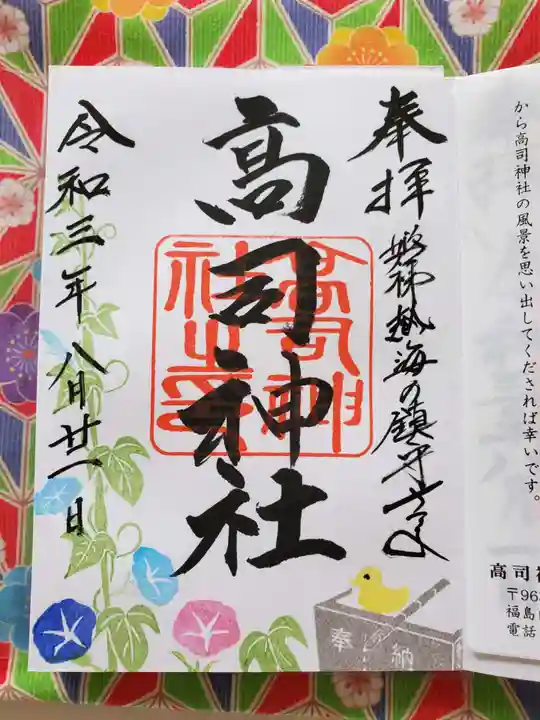 から高司神社の風景を思い出してくだされば幸いです。
高司神
〒963
福島
電話
奉拝
磐梯熱海の鎮守
高司神社
高司神社之印
令和三年八月廿一日
奉納